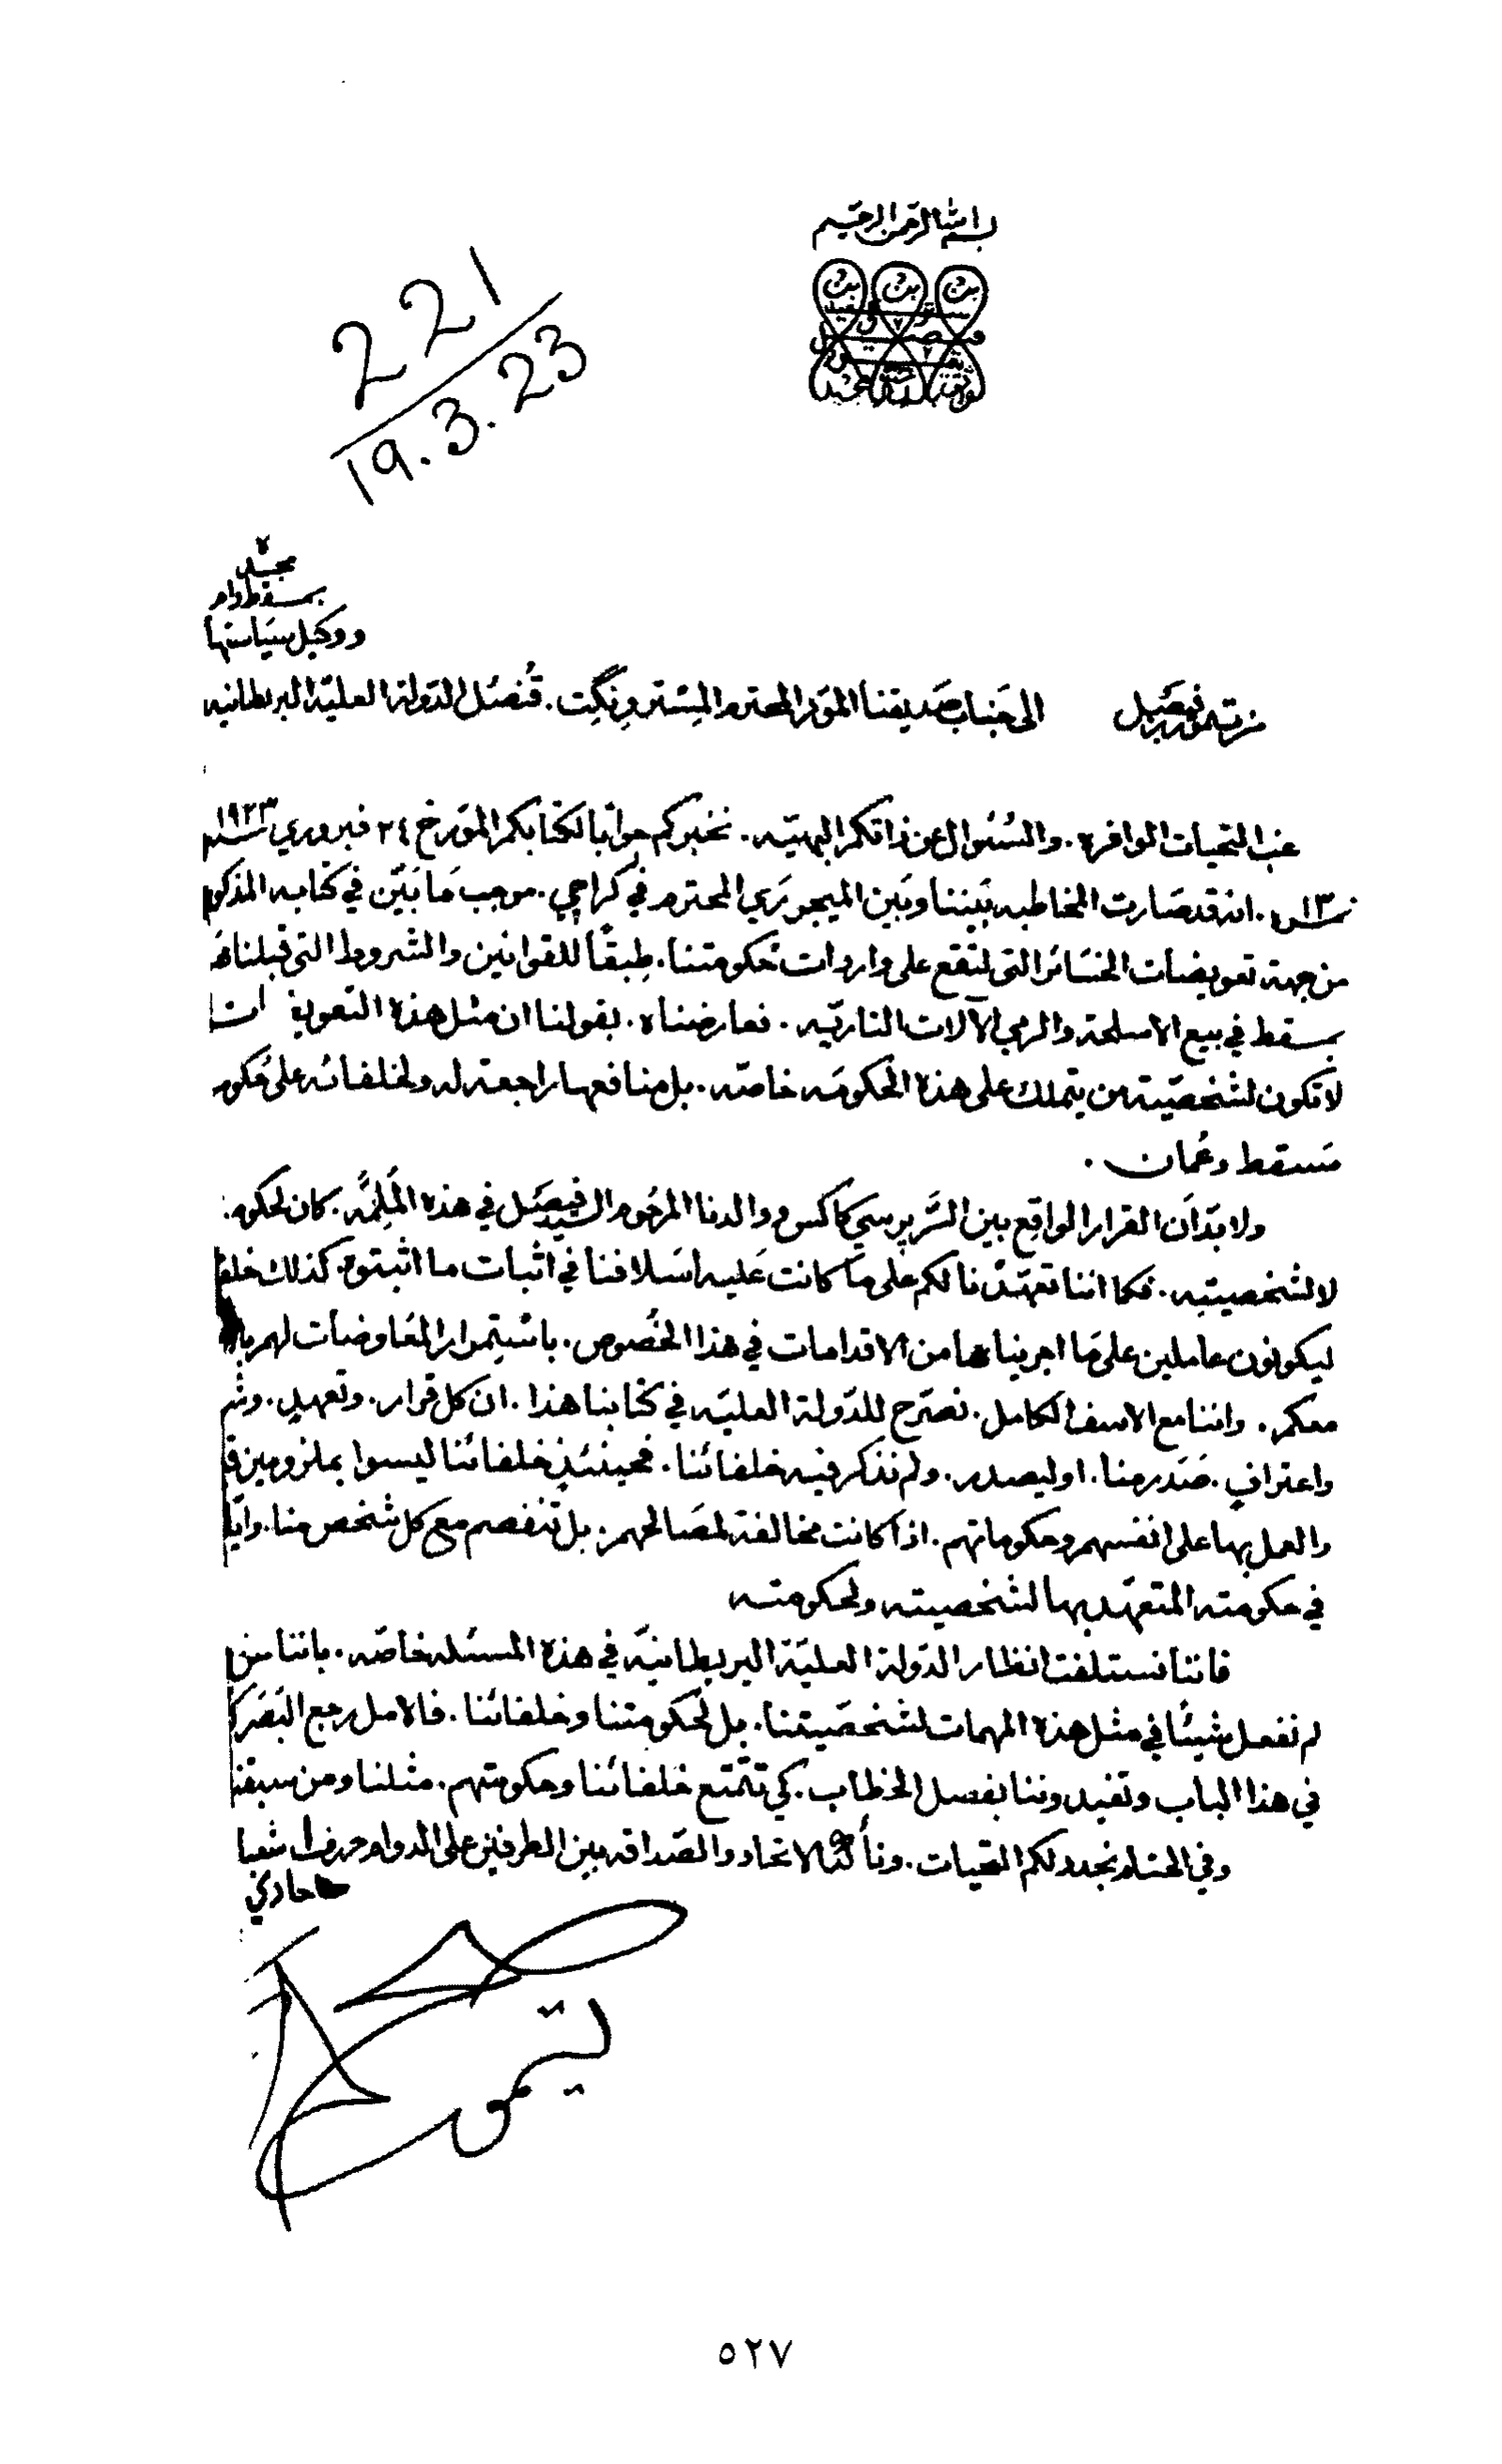 بسم الله الرحمن الرحيم
221
19.3.23
بمسقط دام مجده
ووكيل سياستها
من تيمور بن فيصل الى جناب صديقنا الموقر المحترم المستر ونگيت. قُنصُل الدولة العلية البريطانيه
غب التحيات الوافره. والسُئوال عن ذاتكم البهيّه. نخبركم جوابًا لكتابكم المؤرخ ٢٤ فبروري سنه ١٩٢٣
نمرة ١٣. انه قد صَارت المخاطبه بَيننا وبَين الميجر رَي المحترم في كراچي. موجب مَا بَيّن في كتابه المذكور
من جهة تعويضات الخسَائر التى لتقع على واردات حكومتنا. طِبقًا للقوانين والشروط التى قبلناها
بمسقط في بيع الاسلحة والرمي الآلات الناريّه. نعارضناه. بقولنا ان مثل هذه التعويضات
لا تكون لشخصيّته من يتملك على هذه الحكومَه خاصّه. بل منافعها راجعة له ولخلفائه على حكومة
مَسقط وعُمان.
ولا بدّ اَن القرار الواقع بين السَّر پرسي كاكس ووالدنا المرحُوم السيد فيصَل في هذه المُلِمَّه. كان لحكومته
لا لشخصيته. فكما اننا تعهّدنا لكم على مَا كانت عَليه اسَلافنا في اثبات ما اثبتوه. كذلك
ليكونون عاملين على مَا اجريناها من الاقدامات في هذا الخصُوص. باستِمرار المفاوضات لهم
معكم. واننا مع الاسف الكامل. نصَرّح للدّولة العليّه في كتابنا هذا. ان كل قرار. وتعهدٍ.
واعترافٍ. صَدَر منا. او ليصدر. ولم نذكر فيه خلفائنا. فحينئذٍ خلفائنا ليسوا بملزومين
والعمل بها على انفسهم وحكوماتهم. اذا كانت مخالفة لمصَالحهم. بل تنفصم مع كل شخص منا.
في حكومته المتعهّد بها لشخصيته ولحكومته
فاننا نستلفت انظار الدّولة العليّة البريطانيّه في هذه المسئله خاصّه. باننا
لم نفعل شيئًا في مثل هذه المهمات لشخصَيتنا. بل لحكومتنا وخلفائنا. فالامل رجع البَصَر
في هذا الباب وتفيدوننا بفصل الخطاب. كي تتمتع خلفائنا وحكومتهم. مثلنا ومن سبقنا
وفي الختام نجدد لكم التحيات. ونأكد الاتحاد والصّداقه بين الطرفين على الدوام حرر في شعبا
حادي
تيمور
٥٢٧